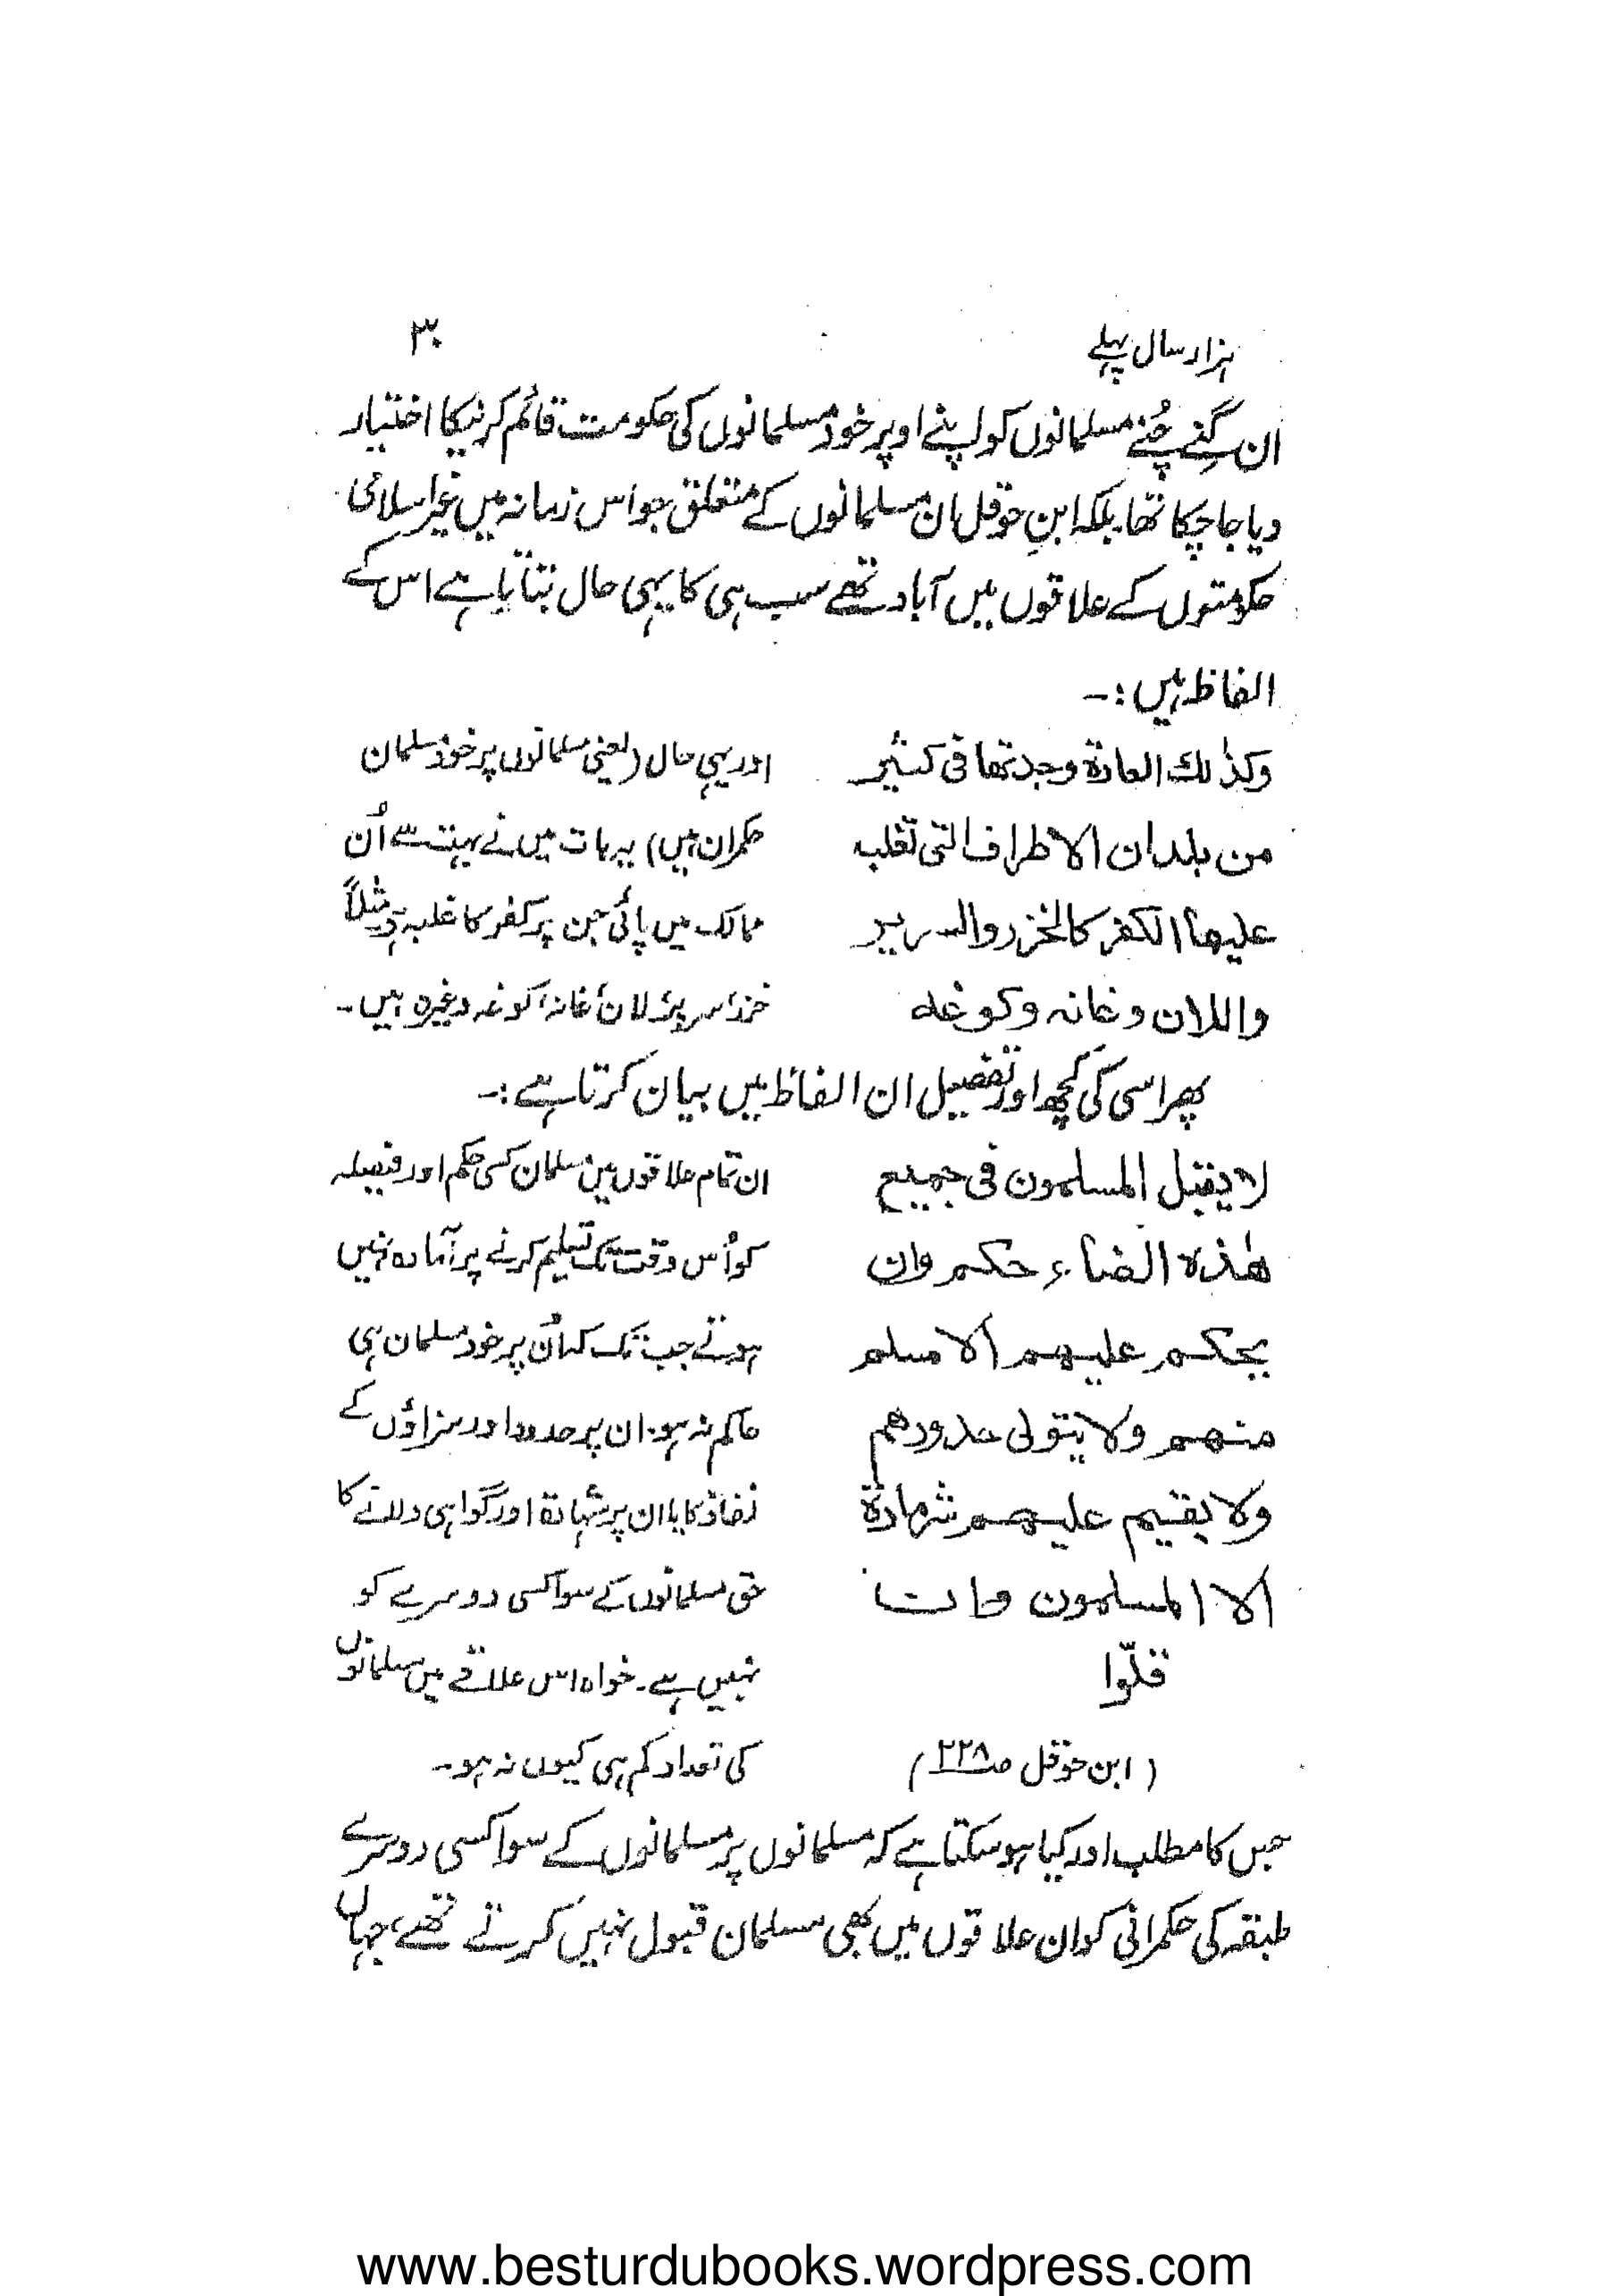 ہزار سال پہلے
۳۰
ان گنے چُنے مسلمانوں کو اپنے اوپر خود مسلمانوں کی حکومت قائم کرنیکا اختیار
دیا جا چکا تھا بلکہ ابنِ حوقل ان مسلمانوں کے متعلق جو اس زمانہ میں غیر اسلامی
حکومتوں کے علاقوں میں آباد تھے سب ہی کا یہی حال بتایا ہے اس کے
الفاظ ہیں :-
وکذٰلك العادة وجدتها فی کثیر
من بلدان الاطراف التی تغلب
علیها الکفر کالخزر والسریر
واللان وغانہ وکوغه
اور یہی حال (یعنی مسلمانوں پر خود مسلمان
حکمران ہیں) یہ بات میں نے بہت سے اُن
ممالک میں پائی جن پر کفر کا غلبہ ہے مثلاً
خزر، سریر، لان، غانہ، کوغہ وغیرہ ہیں۔
پھر اسی کی کچھ اور تفصیل ان الفاظ میں بیان کرتا ہے :-
لا یقبل المسلمون فی جمیع
هٰذه الضاء حکم وان
یحکم علیهم الا مسلم
منهم ولا یتولی حدودهم
ولا یقیم علیهم شهادة
الا المسلمون وان
قلّوا
(ابن حوقل صـ۲۲۸)
ان تمام علاقوں میں مسلمان کسی حکم اور فیصلہ
کو اُس وقت تک تسلیم کرنے پر آمادہ نہیں
ہوتے جب تک کہ اُن پر خود مسلمان ہی
حاکم نہ ہو۔ ان پر حدود اور سزاؤں کے
نفاذ کا یا ان پر شہادۃ اور گواہی دلانے کا
حق مسلمانوں کے سوا کسی دوسرے کو
نہیں ہے۔ خواہ اس علاقے میں مسلمانوں
کی تعداد کم ہی کیوں نہ ہو۔
جس کا مطلب اور کیا ہو سکتا ہے کہ مسلمانوں پر مسلمانوں کے سوا کسی دوسرے
طبقہ کی حکمرانی کو ان علاقوں میں بھی مسلمان قبول نہیں کرتے تھے، جہاں
www.besturdubooks.wordpress.com